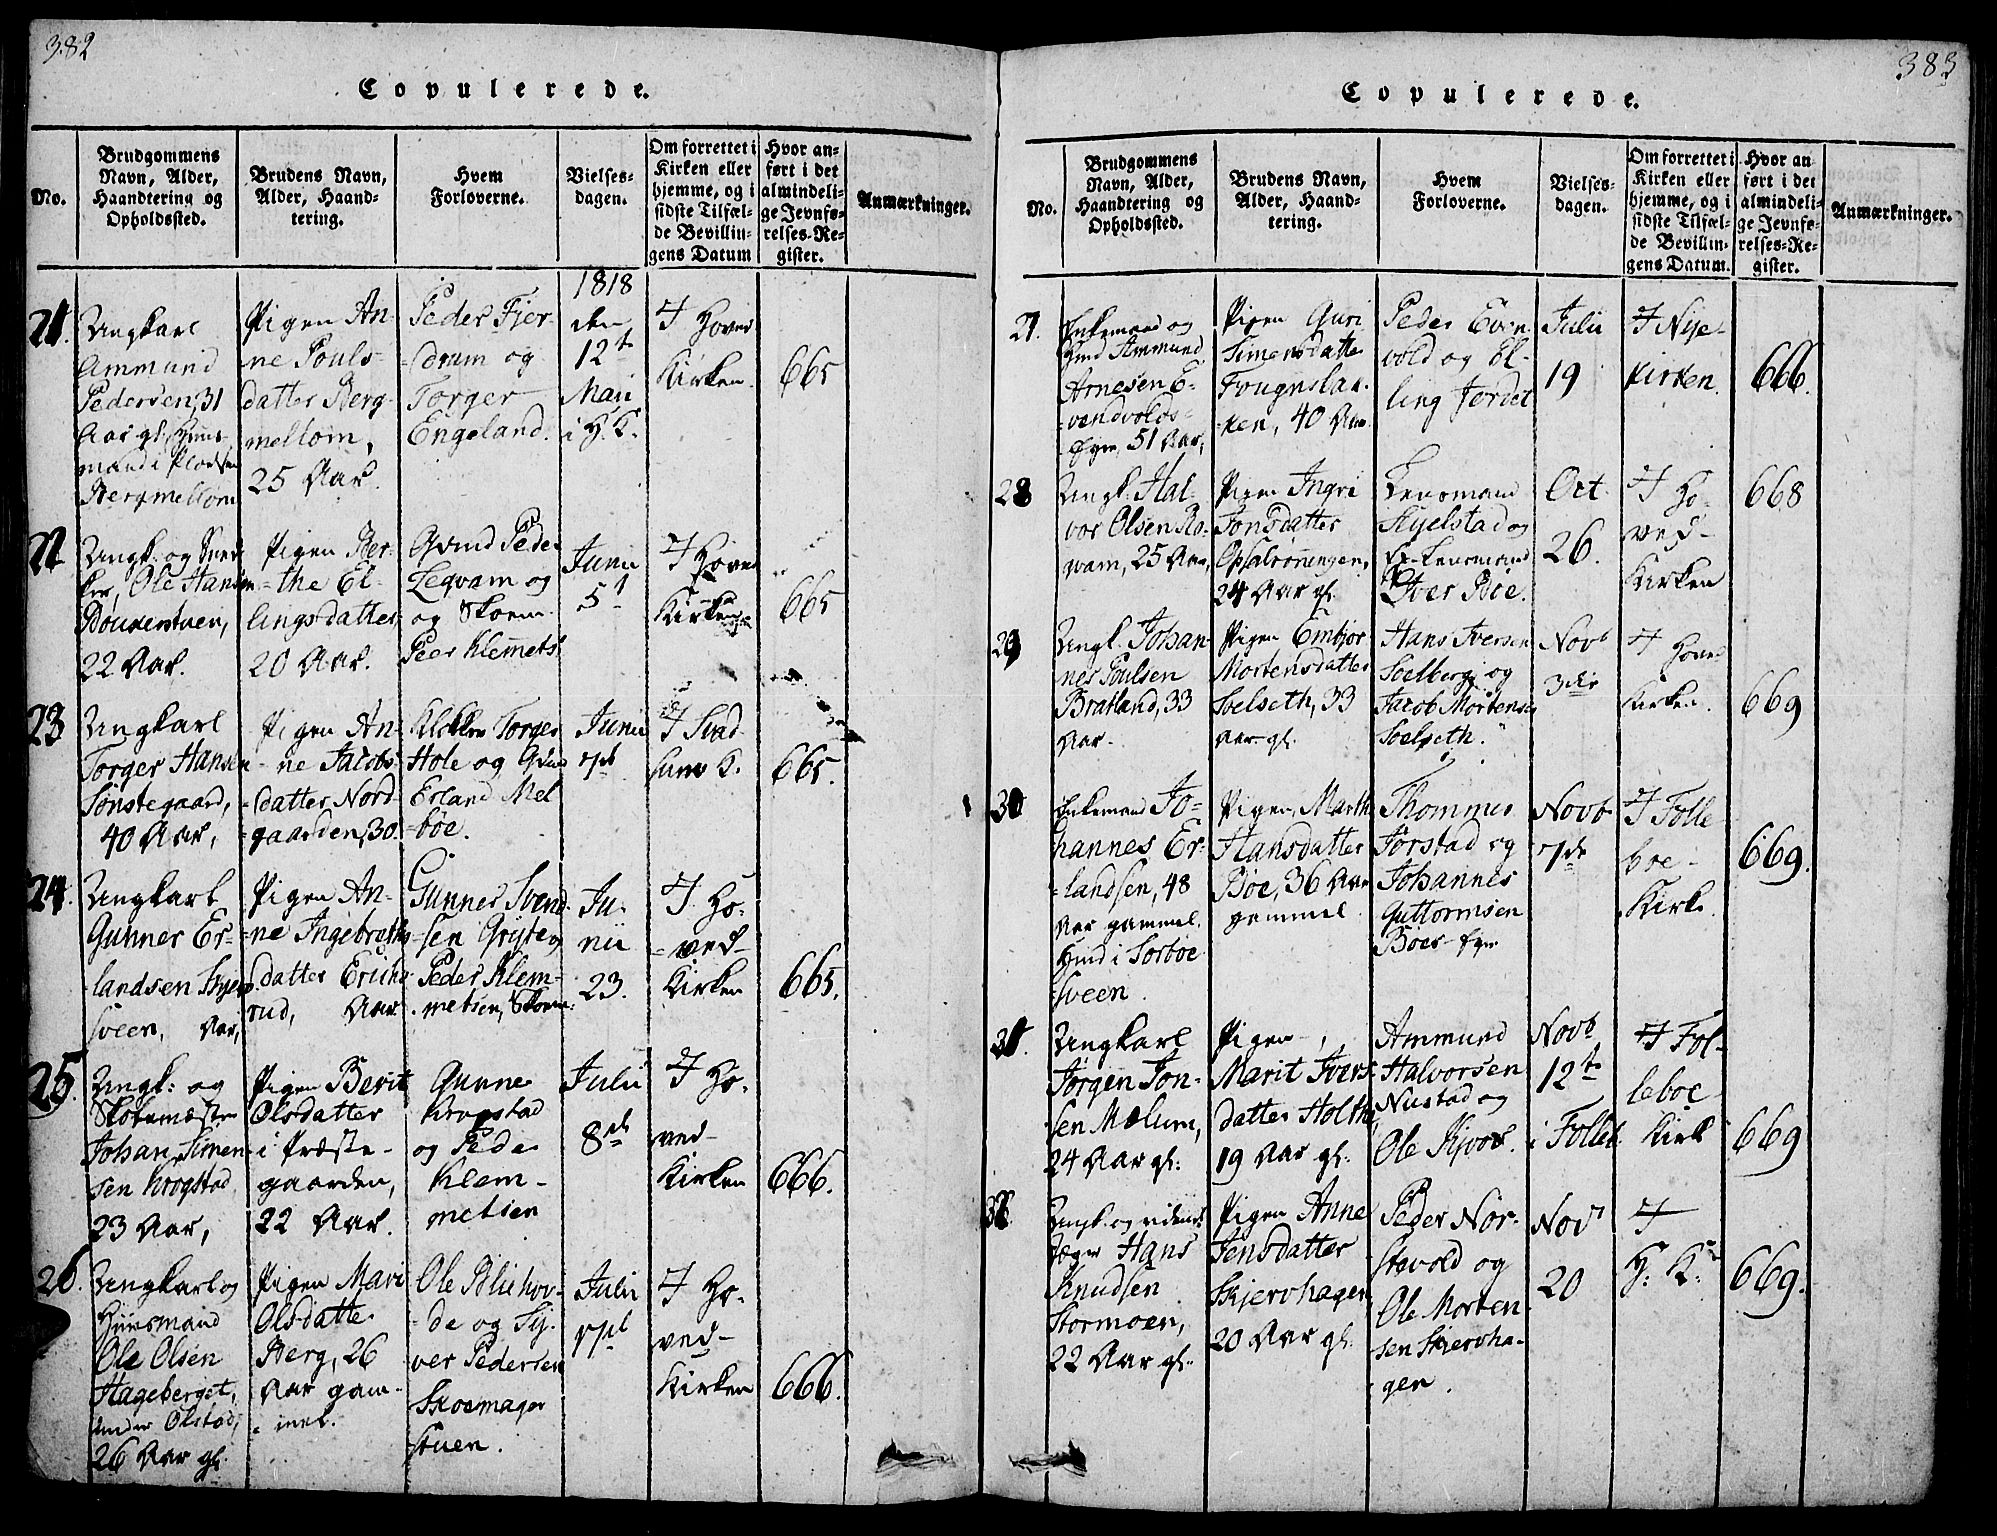 382
Copulerede.
No.
Brudgommens
Navn, Alder,
Haandtering og
Opholdssted.
Brudens Navn,
Alder, Haand-
tering.
Hvem
Forloverne.
Vielses-
dagen.
Om forrettet i
Kirken eller
hjemme, og i
sidste Tilfæl-
de Bevillin-
gens Datum
Hvor an-
ført i det
almindeli-
ge Jevnfø-
relses-Re-
gister.
Anmærkninger.
21.
Ungkarl
Ammund
Pedersen, 31
Aar gl. Huus-
mand i
Bergmellom
Pigen An-
ne Pouls-
datter Berg-
mellom,
25 Aar.
Peder Fjer-
drum og
Torger
Engeland.
1818
den
12t
Maii
i H. K.
I Hoved
Kirken.
665
22
Ungk. og
Ole Hansen
22 Aar.
Pigen Ber-
the El-
lingsdatter,
20 Aar.
Gvind Peder
Zeqvam og
og Skoem.
Peer Klemets.
Junii
5t
I Hoved
Kirken
665
23
Ungkarl
Torger Hansen
Sönstegaard,
40 Aar,
Pigen An-
ne Jacobs-
datter Nord-
gaarden, 30.
Klokker Torger
Hole og
Erland Mel-
böe.
Junii
7de
I
K.
665.
24.
Ungkarl
Gunner Er-
landsen
sveen, Aar,
Pigen An-
ne Ingebreths-
datter Erichs-
rud, Aar
Gunner Svend-
sen
Peder Klem-
metsen, Skoem.
Ju-
nii
23.
I Ho-
ved-
Kirken
665.
25.
Ungk: og
Johan Simen-
sen Krogstad
23 Aar,
Pigen Berit
Olsdatter
i Præste-
gaarden,
22 Aar.
Gunner
Krogstad
og Peder
Klem-
metsen
Julii
8de
I Ho-
ved-
Kirken
666.
26.
Ungkarl og
Huusmand
Ole Olsen
Hageberget,
under Olstad,
26 Aar gl.
Pigen Mari
Olsdatter
Berg, 26
Aar gam-
mel.
Ole Bliehov-
de og Sy-
ver Pedersen
Skoemager
stuen.
Julii
I Ho-
ved-
Kirken
666.
383
Copulerede.
No.
Brudgommens
Navn, Alder,
Haandtering og
Opholdssted.
Brudens Navn,
Alder, Haand-
tering.
Hvem
Forloverne.
Vielses-
dagen.
Om forrettet i
Kirken eller
hjemme, og i
sidste Tilfæl-
de Bevillin-
gens Datum.
Hvor an
ført i det
almindeli-
ge Jevnfø-
relses-Re-
gister.
Anmærkninger.
27.
Enkemand og
Hmd Ammund
Arnesen E-
vendvolds-
Eyer, 51 Aar,
Pigen Guri
Simensdatter
Fougnslak-
ken, 40 Aar.
Peder Even
vold og El-
ling Jordet
Julii
19
I Nye-
kirken.
666.
28
Ungk. Hal-
vor Olsen
25 Aar,
Pigen Ingri
Jonsdatter
Opsalrönningen,
24 Aar gl.
Lensmand
Skjelstad og
Ex-Lensmand
Iver Böe.
Oct.
26.
I Ho-
ved-
Kirken
668
29
Ungk. Johan-
nes Poulsen
Bratland, 33
Aar.
Pigen Embjor
Mortensdatter
Soelseth, 33
Aar gl.
Hans Iversen
Soelberg og
Jacob Mortensen
Soelseth.
Novb
3die
I Hoved
Kirken.
669
30
Enkemand Jo-
hannes Er-
landsen, 48
Aar gammel.
Hmd i Sorböe
sveen.
Pigen Marthe
Hansdatter
Böe, 36 Aar
gammel.
Thommes
Jörstad og
Johannes
Guttormsen
Böes-Eyer
Novb
7de
I Folle
boe-
Kirke.
669.
31.
Ungkarl
Jörgen Jon-
sen Mælum,
24 Aar gl:
Pigen
Marit Ivers-
datter Holthe
19 Aar gl.
Ammund
Halvorsen
Nustad og
Ole Kjoos.
Novb
12te
i Folleb.
I Fol-
leboe
Kirk
669
32
Ungk. og ridende
Jæger Hans
Knudsen
Stormoen,
22 Aar gl.
Pigen Anne
Jensdatter
Skjervhagen
20 Aar gl.
Peder Nor-
stevold og
Ole Morten-
sen Skjervha-
gen.
Nov
20
I
H: K:
669.